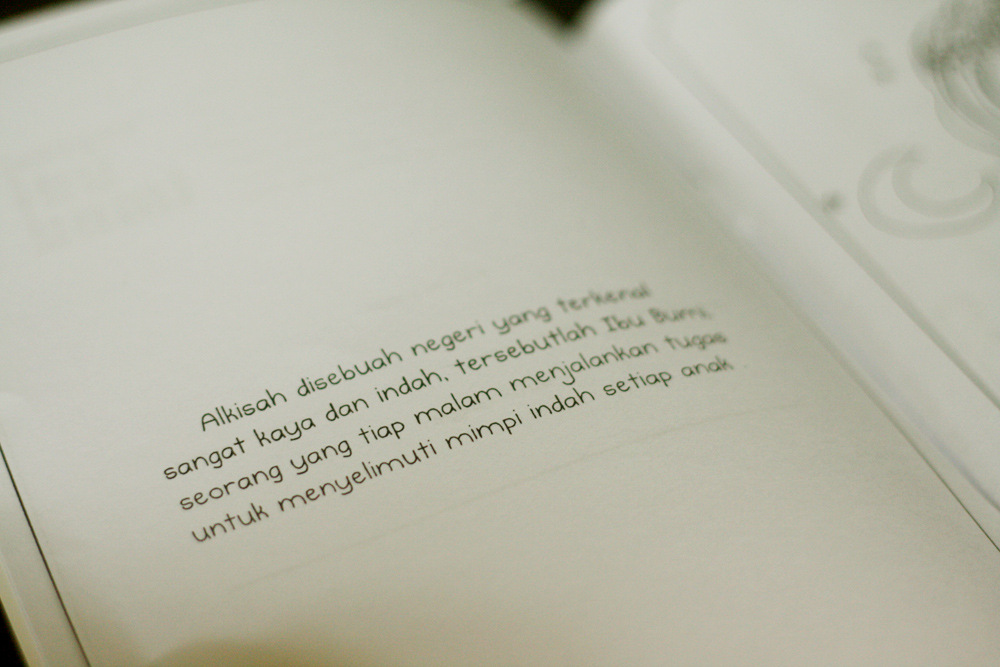 Alkisah disebuah negeri yang terkenal
sangat kaya dan indah, tersebutlah Ibu Bumi,
seorang yang tiap malam menjalankan tugas
untuk menyelimuti mimpi indah setiap anak